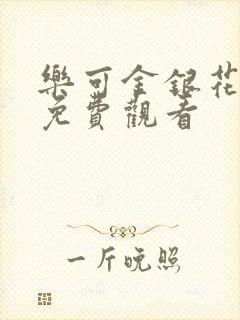 樂可金銀花
免費觀看
一斤晚照